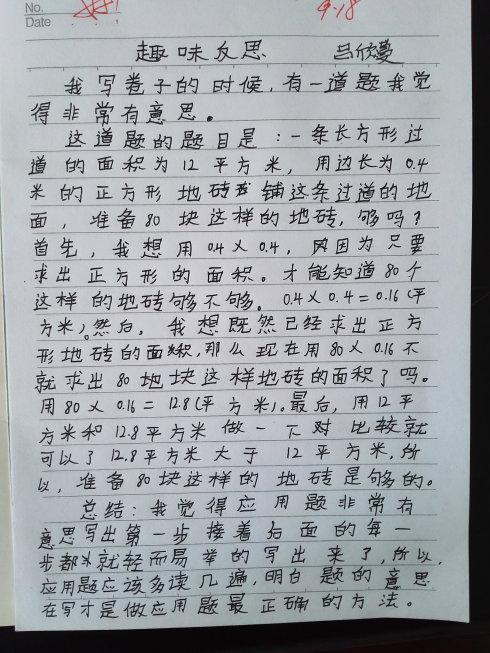 No.
Date
9.18
趣味反思 吕欣蔓
我写卷子的时候,有一道题我觉
得非常有意思。
这道题的题目是:一条长方形过
道的面积为12平方米,用边长为0.4
米的正方形地砖铺这条过道的地
面,准备80块这样的地砖,够吗?
首先,我想用0.4×0.4,因为只要
求出正方形的面积。才能知道80个
这样的地砖够不够。0.4×0.4=0.16(平
方米)。然后,我想既然已经求出正方
形地砖的面积,那么现在用80×0.16不
就求出80地块这样地砖的面积了吗。
用80×0.16=12.8(平方米)。最后,用12平
方米和12.8平方米做一下对比较就
可以了12.8平方米大于12平方米,所
以,准备80块这样的地砖是够的。
总结:我觉得应用题非常有
意思写出第一步接着后面的每一
步都就轻而易举的写出来了,所以,
应用题应该多读几遍,明白题的意思
在写才是做应用题最正确的方法。